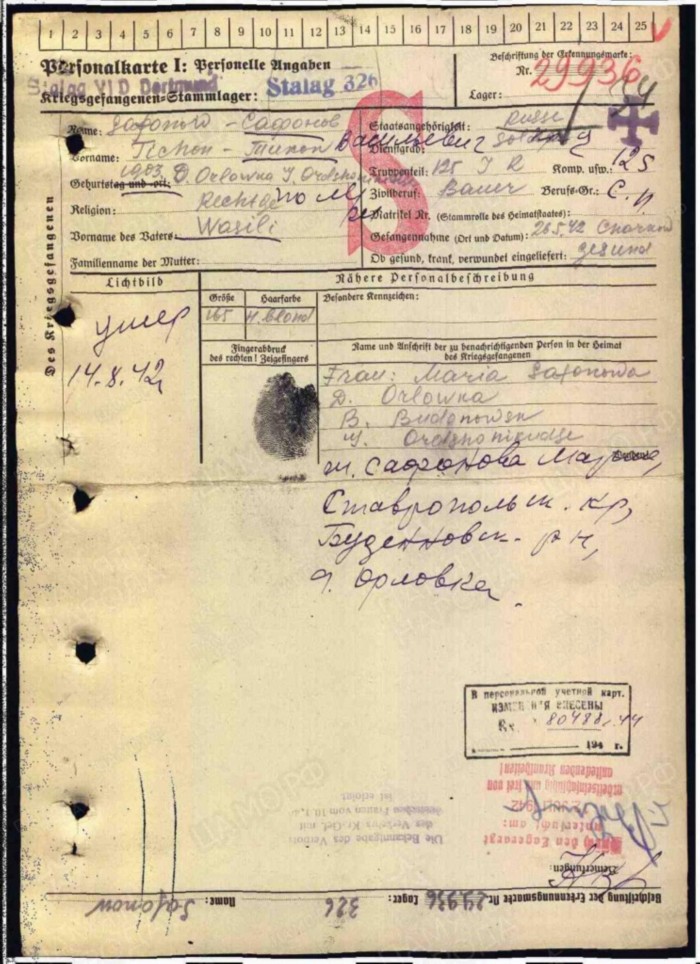 1 2 3 4 5 6 7 8 9 10 11 12 13 14 15 16 17 18 19 20 21 22 23 24 25
Personalkarte I: Personelle Angaben
Stalag VI D Dortmund
Kriegsgefangenen-Stammlager: Stalag 326
Beschriftung der Erkennungsmarke:
Nr. 29936
Lager:
Des Kriegsgefangenen
S
Name: Safonow - Сафонов
Vorname: Tichon - Тихон Васильевич
Geburtstag und -ort: 1903 D. Orlowka
Religion:
Vorname des Vaters: Wasili
Familienname der Mutter:
Staatsangehörigkeit: Russe
Dienstgrad: Soldat
Truppenteil: 125 I R Komp. usw.: 125
Zivilberuf: Bauer Berufs-Gr.: С.п
Matrikel Nr. (Stammrolle des Heimatstaates):
Gefangennahme (Ort und Datum): 26.5.42 Charkow
Ob gesund, krank, verwundet eingeliefert: gesund
Lichtbild
умер
14.8.42
Nähere Personalbeschreibung
Größe Haarfarbe Besondere Kennzeichen:
165 blond
Fingerabdruck
des rechten! Zeigefingers
Name und Anschrift der zu benachrichtigenden Person in der Heimat
des Kriegsgefangenen
Frau: Maria Safonowa
D. Orlowka
B. Budonowsk
Ordshonikudse
ж. Сафонова Мария,
Ставропольск. кр,
Буденновск. р н,
д. Орловка.
В персональной учетной карт.
ИЗМЕНЕНИЯ ВНЕСЕНЫ
194 г.
Die Bekanntgabe des Verbots
des Verkehrs Kr.-Gef. mit
deutschen Frauen vom 10.1.
ist erfolgt
Bemerkungen:
Beschriftung der Erkennungsmarke Nr. 29936 Lager: 326 Name: Safonow